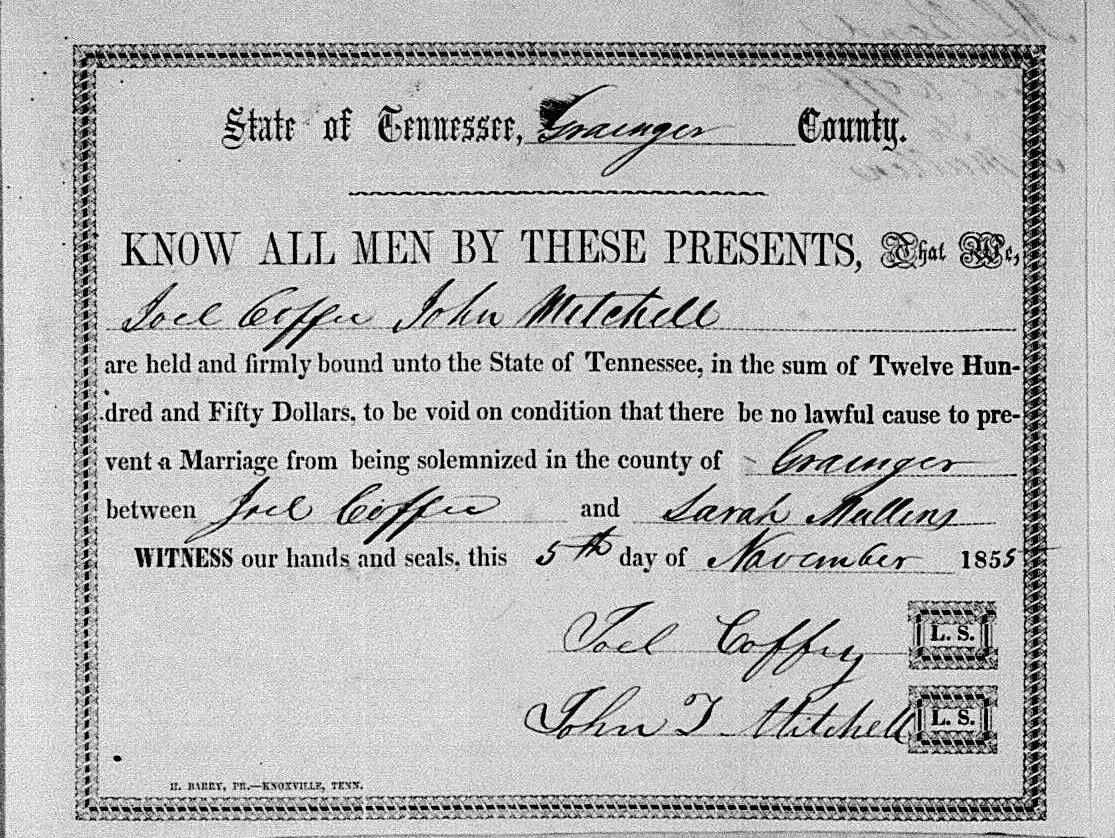 State of Tennessee, Grainger County.
KNOW ALL MEN BY THESE PRESENTS, That We,
Joel Coffee John Mitchell
are held and firmly bound unto the State of Tennessee, in the sum of Twelve Hun-
dred and Fifty Dollars, to be void on condition that there be no lawful cause to pre-
vent a Marriage from being solemnized in the county of Grainger
between Joel Coffee and Sarah Mullens
WITNESS our hands and seals, this 5th day of November 1855
Joel Coffey L. S.
John T Mitchell L. S.
H. BARRY, PR.—KNOXVILLE, TENN.